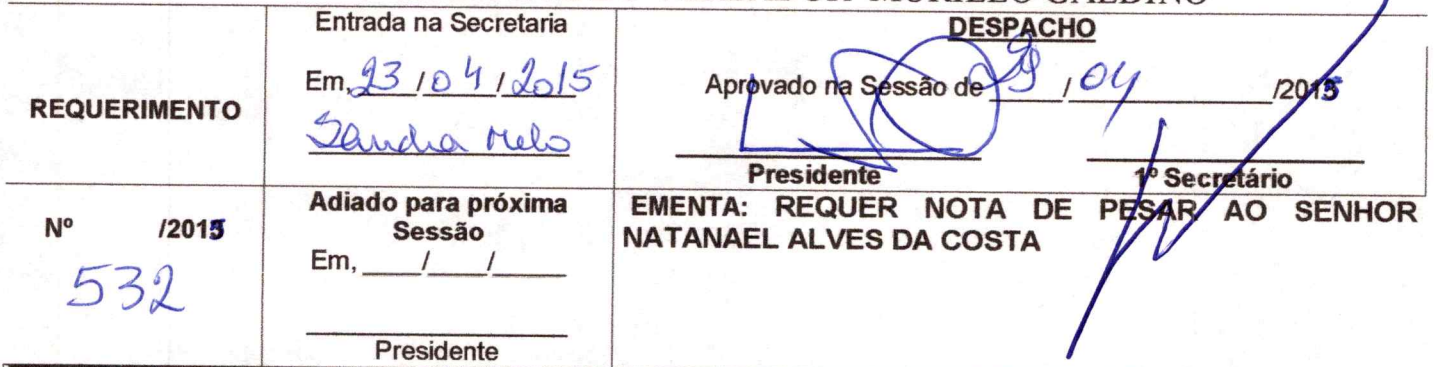 MURILLO GALDINO
REQUERIMENTO
Entrada na Secretaria
Em, 23 / 04 / 2015
Sandra Melo
DESPACHO
Aprovado na Sessão de 29 / 04 /2015
Presidente
1º Secretário
Nº /2015
532
Adiado para próxima
Sessão
Em, ____/____/______
Presidente
EMENTA: REQUER NOTA DE PESAR AO SENHOR
NATANAEL ALVES DA COSTA